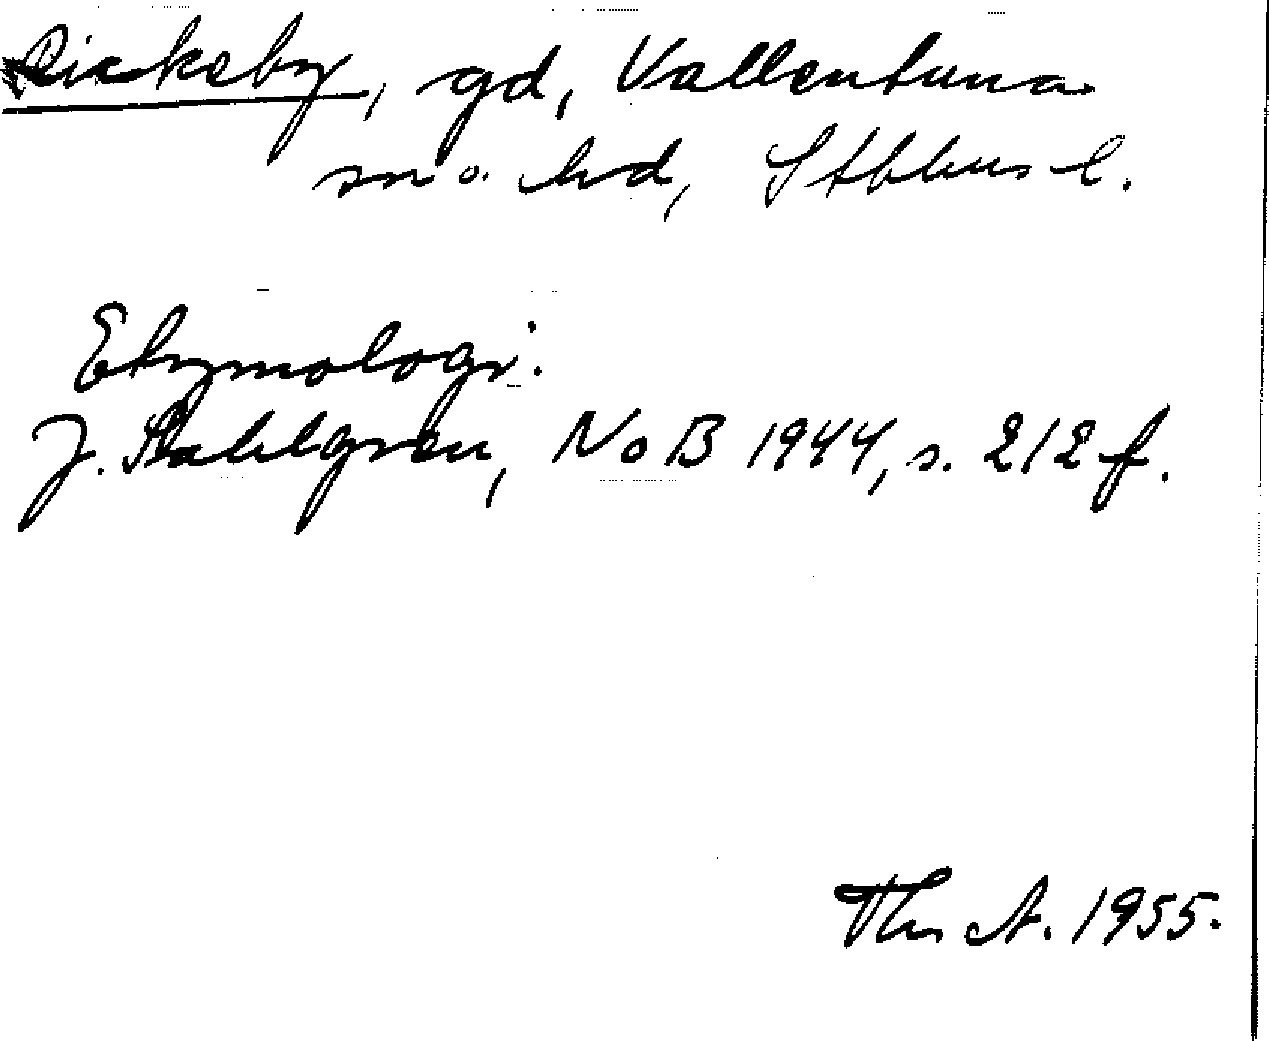 Rickeby, gd, Vallentuna
sn o. hd, Sthlms l.
Etymologi:
J. Sahlgren, NoB 1944, s. 212 f.
Thn A. 1955.